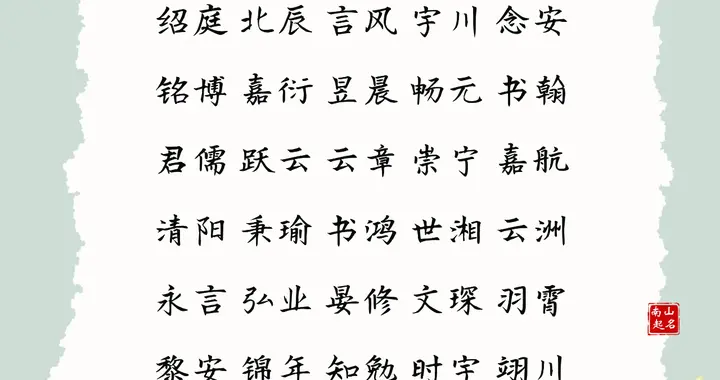 绍庭 北辰 言风 宇川 念安
铭博 嘉衍 昱晨 畅元 书翰
君儒 跃云 云章 崇宁 嘉航
清阳 秉瑜 书鸿 世湘 云洲
永言 弘业 晏修 文琛 羽霄
黎安 锦年 知勉 时宇 翊川
南山
起名